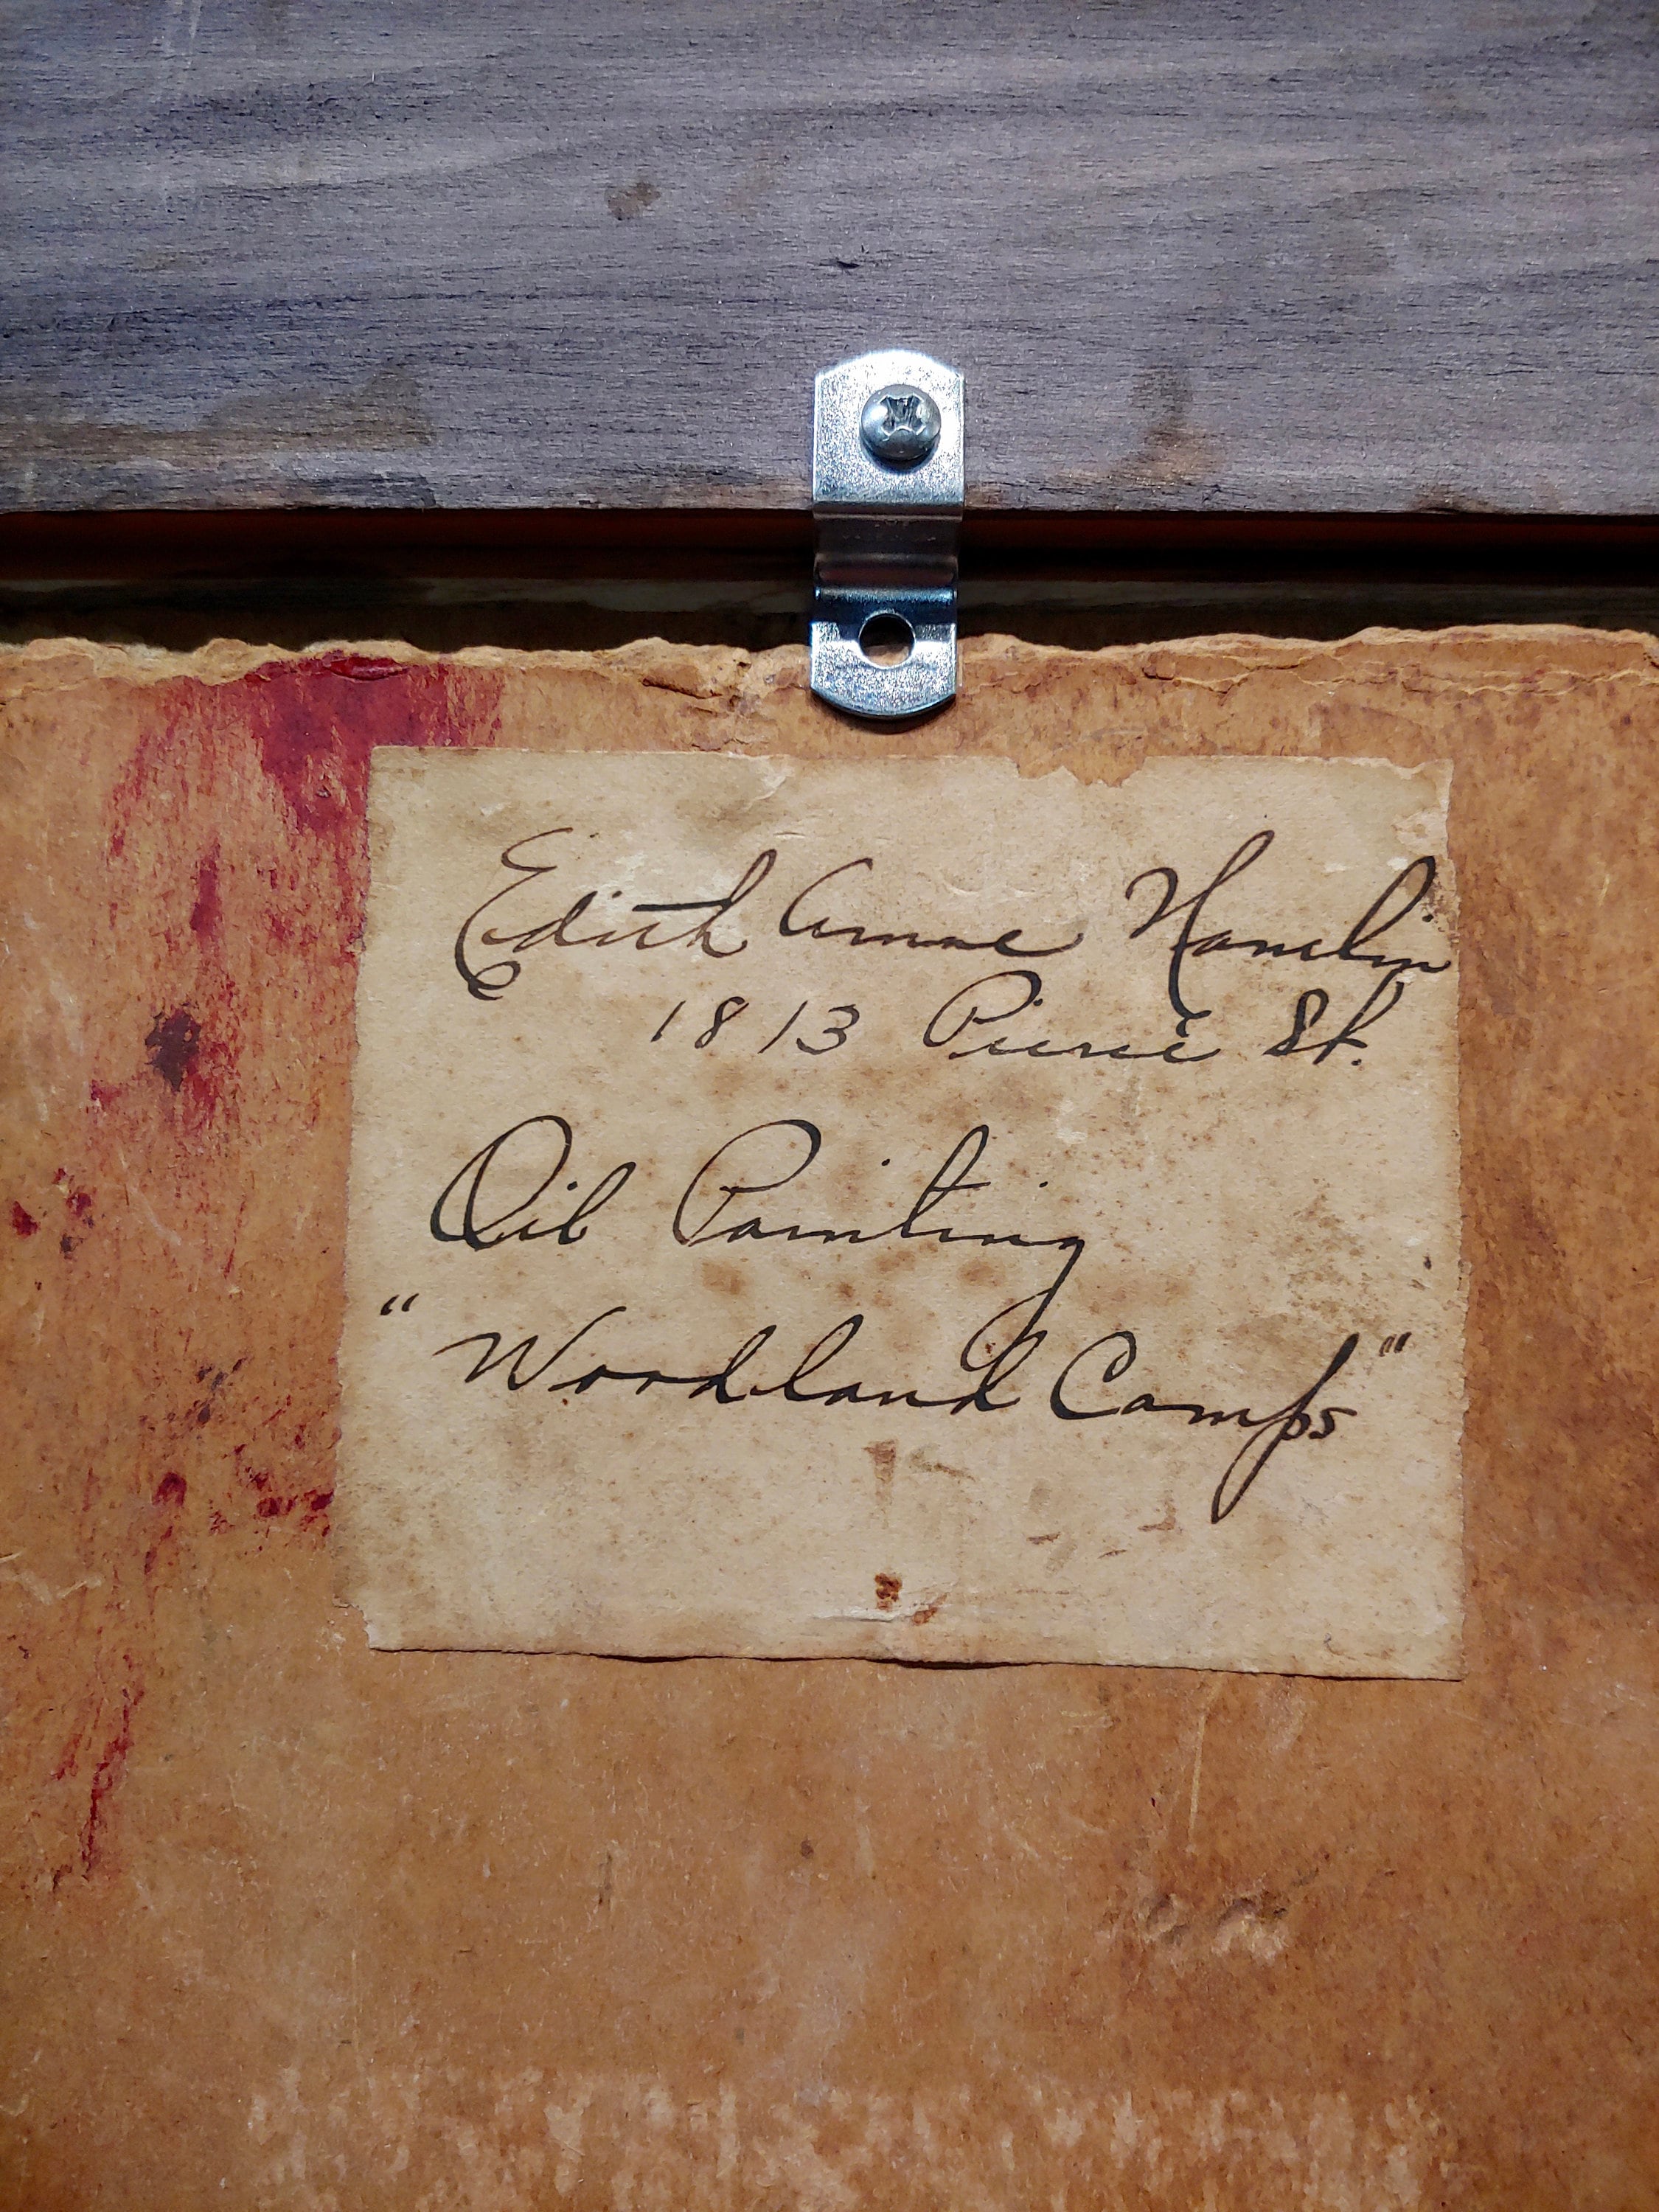 Edith Anne Hamlin
1813 Pierce St.
Oil Painting
“Woodland Camps”